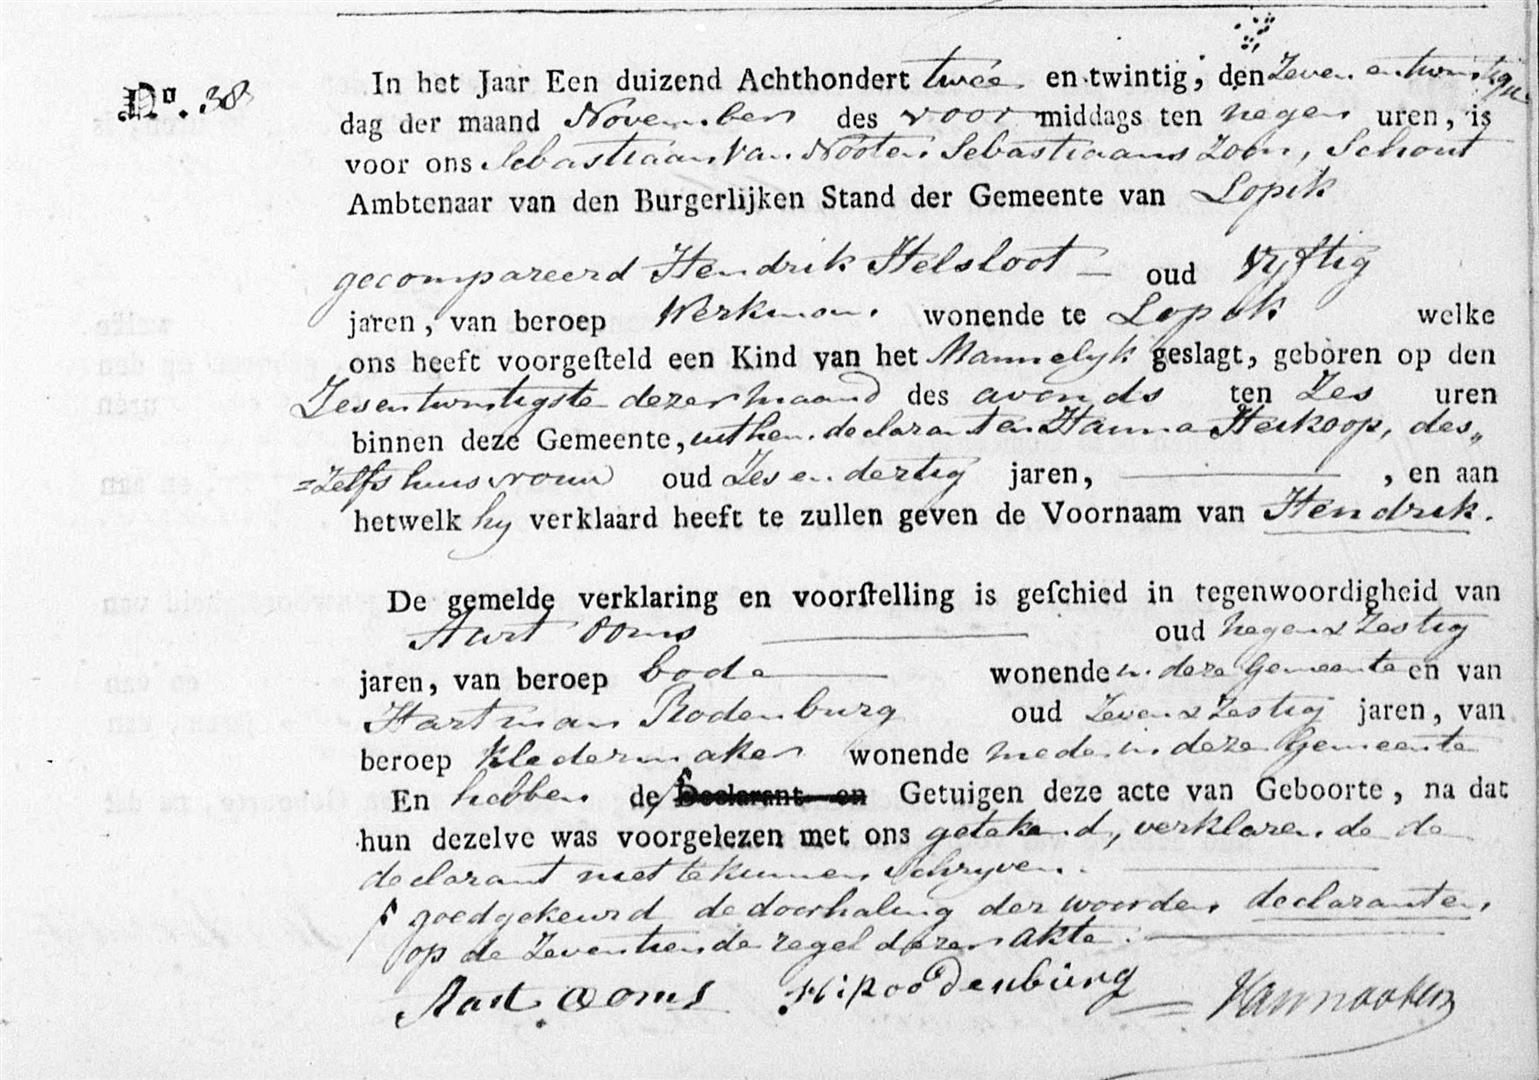 No. 38
In het Jaar Een duizend Achthondert twee en twintig, den Zeven en twintigste
dag der maand November des voor middags ten negen uren, is
voor ons Sebastiaan van Nooten Sebastiaans Zoon, Schout
Ambtenaar van den Burgerlijken Stand der Gemeente van Lopik
gecompareerd Hendrik Helsloot oud Vyftig
jaren, van beroep Werkman wonende te Lopik welke
ons heeft voorgesteld een Kind van het Mannelyk geslagt, geboren op den
Zesentwintigste dezer maand des avonds ten Zes uren
binnen deze Gemeente, uit hem declarant en Hanna Heikoop, des„
=zelfs huisvrouw oud Zes en dertig jaren, , en aan
hetwelk hy verklaard heeft te zullen geven de Voornaam van Hendrik.
De gemelde verklaring en voorstelling is geschied in tegenwoordigheid van
Aart Ooms oud negen & Zestig
jaren, van beroep bode wonende in deze Gemeente en van
Hartman Rodenburg oud Zeven & Zestig jaren, van
beroep Kledermaker wonende mede in deze Gemeente
En hebben de Declarant en Getuigen deze acte van Geboorte, na dat
hun dezelve was voorgelezen met ons getekend, verklarende de
declarant niet te kunnen schryven.
goedgekeurd de doorhaling der woorden declarant en,
op de Zeventiende regel dezer akte.
Aart Ooms H:Roodenburg VanNooten